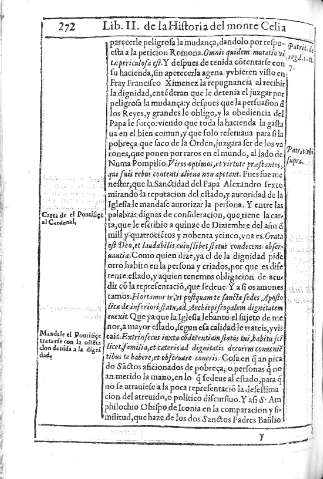 272 Lib. II. de la Historia del monte Celia
parecerle peligrosa la mudança, dandolo por respu-
esta a la peticion Romana. Omnis quidem mutatio vi
tæ periculosa est. Y despues de tenida cōtentarse con
su hacienda, sin apetecer la agena y vbieren visto en
Fray Francisco Ximenez la repugnancia al recibir
la dignidad, entēderan que le detenia el juzgar por
peligrosa la mudança y despues que la persuasion d
los Reyes, y grandes lo obligo, y la obediencia del
Papa le forço: viendo que toda la hacienda la gasta
ua en el bien comun, y que solo reseruaua para si la
pobreça que saco de la Orden, juzgara ser de los va
rones, que ponen por raros en el mundo, al lado de
Numa Pompilio Viros optimos, et virtute præstantes,
qui suis rebus contenti alienа non apetant. Pues fue me
nester, que la Sanctidad del Papa Alexandro sexto
mirando la reputacion del estado, y autoridad de la
Iglesia le mandase autorizar la persona. Y entre las
palabras dignas de consideracion, que tiene la car-
ta, que le escribio a quince de Diziembre del año d
mill y quatrociētos y nobenta y cinco, vox es Grata
est Deo, et laudabilis cuiuslibet status condecens obser-
uantia. Como quien dize, ya el de la dignidad pide
otro habito en la persona y criados, por que es dife
rente estado, y aquien tenemos obligacion de acu-
dir cō la representacion, que se deue. Y a si os amones
tamos. Hortamur te, et postquam te sancta sedes Aposto
lica de inferiori statu, ad Archiepiscopalem dignitatem
euexit Que ya que la Iglesia lebanto el sujeto de me
nor, a mayor estado, segun esa calidad le trateis, y vis
tais. Extrinsecus iuxta cōdecentiam status tui, habitu sci
licet, familia, et cæteris ad dignitatis decorem conuenien
tibus te habere, et obseruare coneris. Cosa en q̄ an pica
do Sāctos aficionados de pobreça, o personas q̄ no
an metido la mano, en lo q̄ se deue al estado, para q̄
no se atrauiese a la poca representaciō la desestima
cion del atreuido, o politico discursiuo. Y asi S. Am
philochio Obispo de Iconia en la comparacion y si-
militud, que haze de los dos Sanctos Padres Basilio
y
Patric. de
regd. l. 1.
7.
Patric. vbi
supra.
Carta de el Pontifice
al Cardenal,
Mandale el Pontifice
tratarse con la osten
cion deuida a la digni
dad;